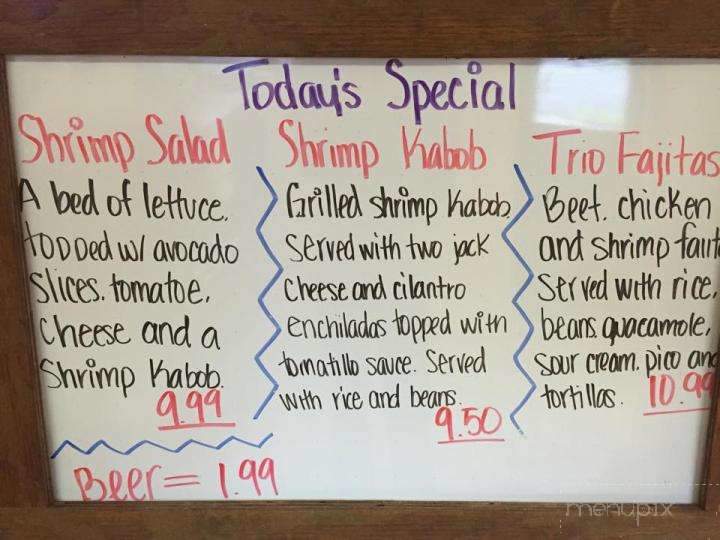 Today's Special
Shrimp Salad
A bed of lettuce.
topped w/ avocado
slices. tomatoe,
cheese and a
Shrimp Kabob.
9.99
Beer = 1.99
Shrimp Kabob
Grilled shrimp Kabob.
Served with two jack
cheese and cilantro
enchiladas topped with
tomatillo sauce. Served
with rice and beans.
9.50
Trio Fajitas
Beef. chicken
and shrimp fajit
Served with rice,
beans. guacamole,
sour cream. pico and
tortillas.
10.99
menupix